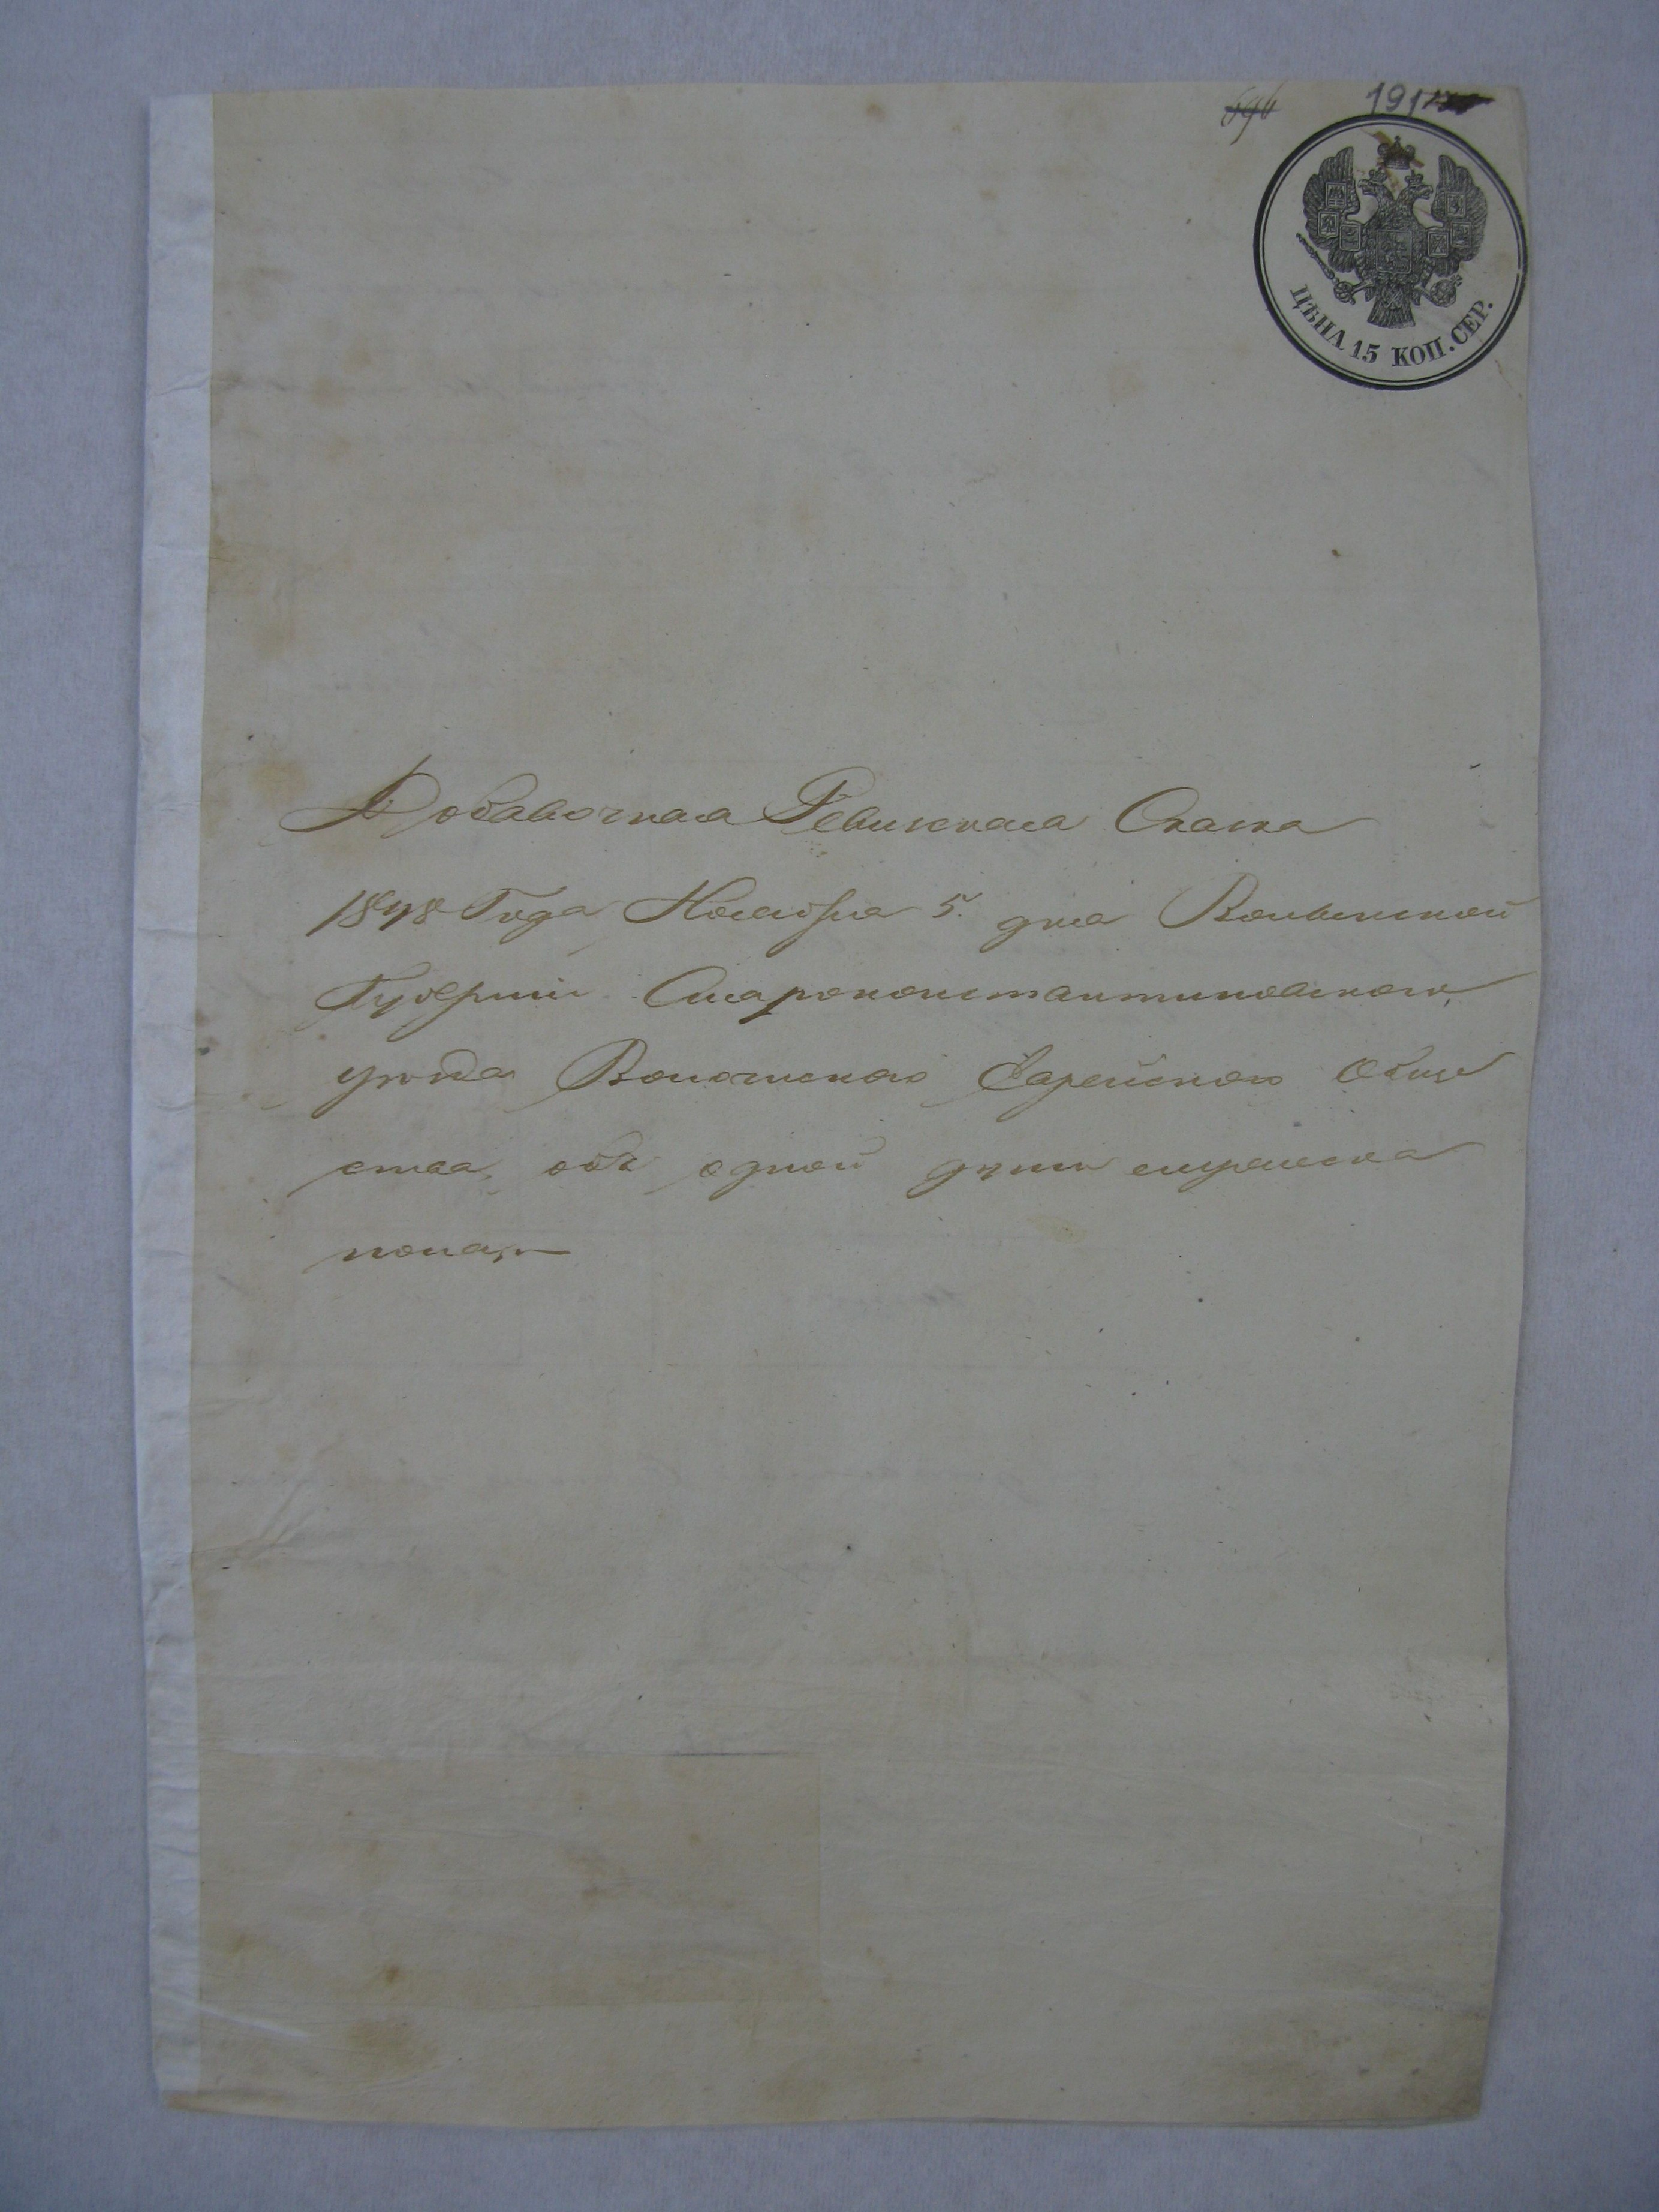 191
ЦѢНА 15 КОП. СЕР.
Добавочная Ревизкая Сказка
1848 Года Ноября 5. дня Волынской
Губерніи Староконстантиновского
уѣзда Волочиского Еврейского Обще
ства, объ одной души мужеска
пола,